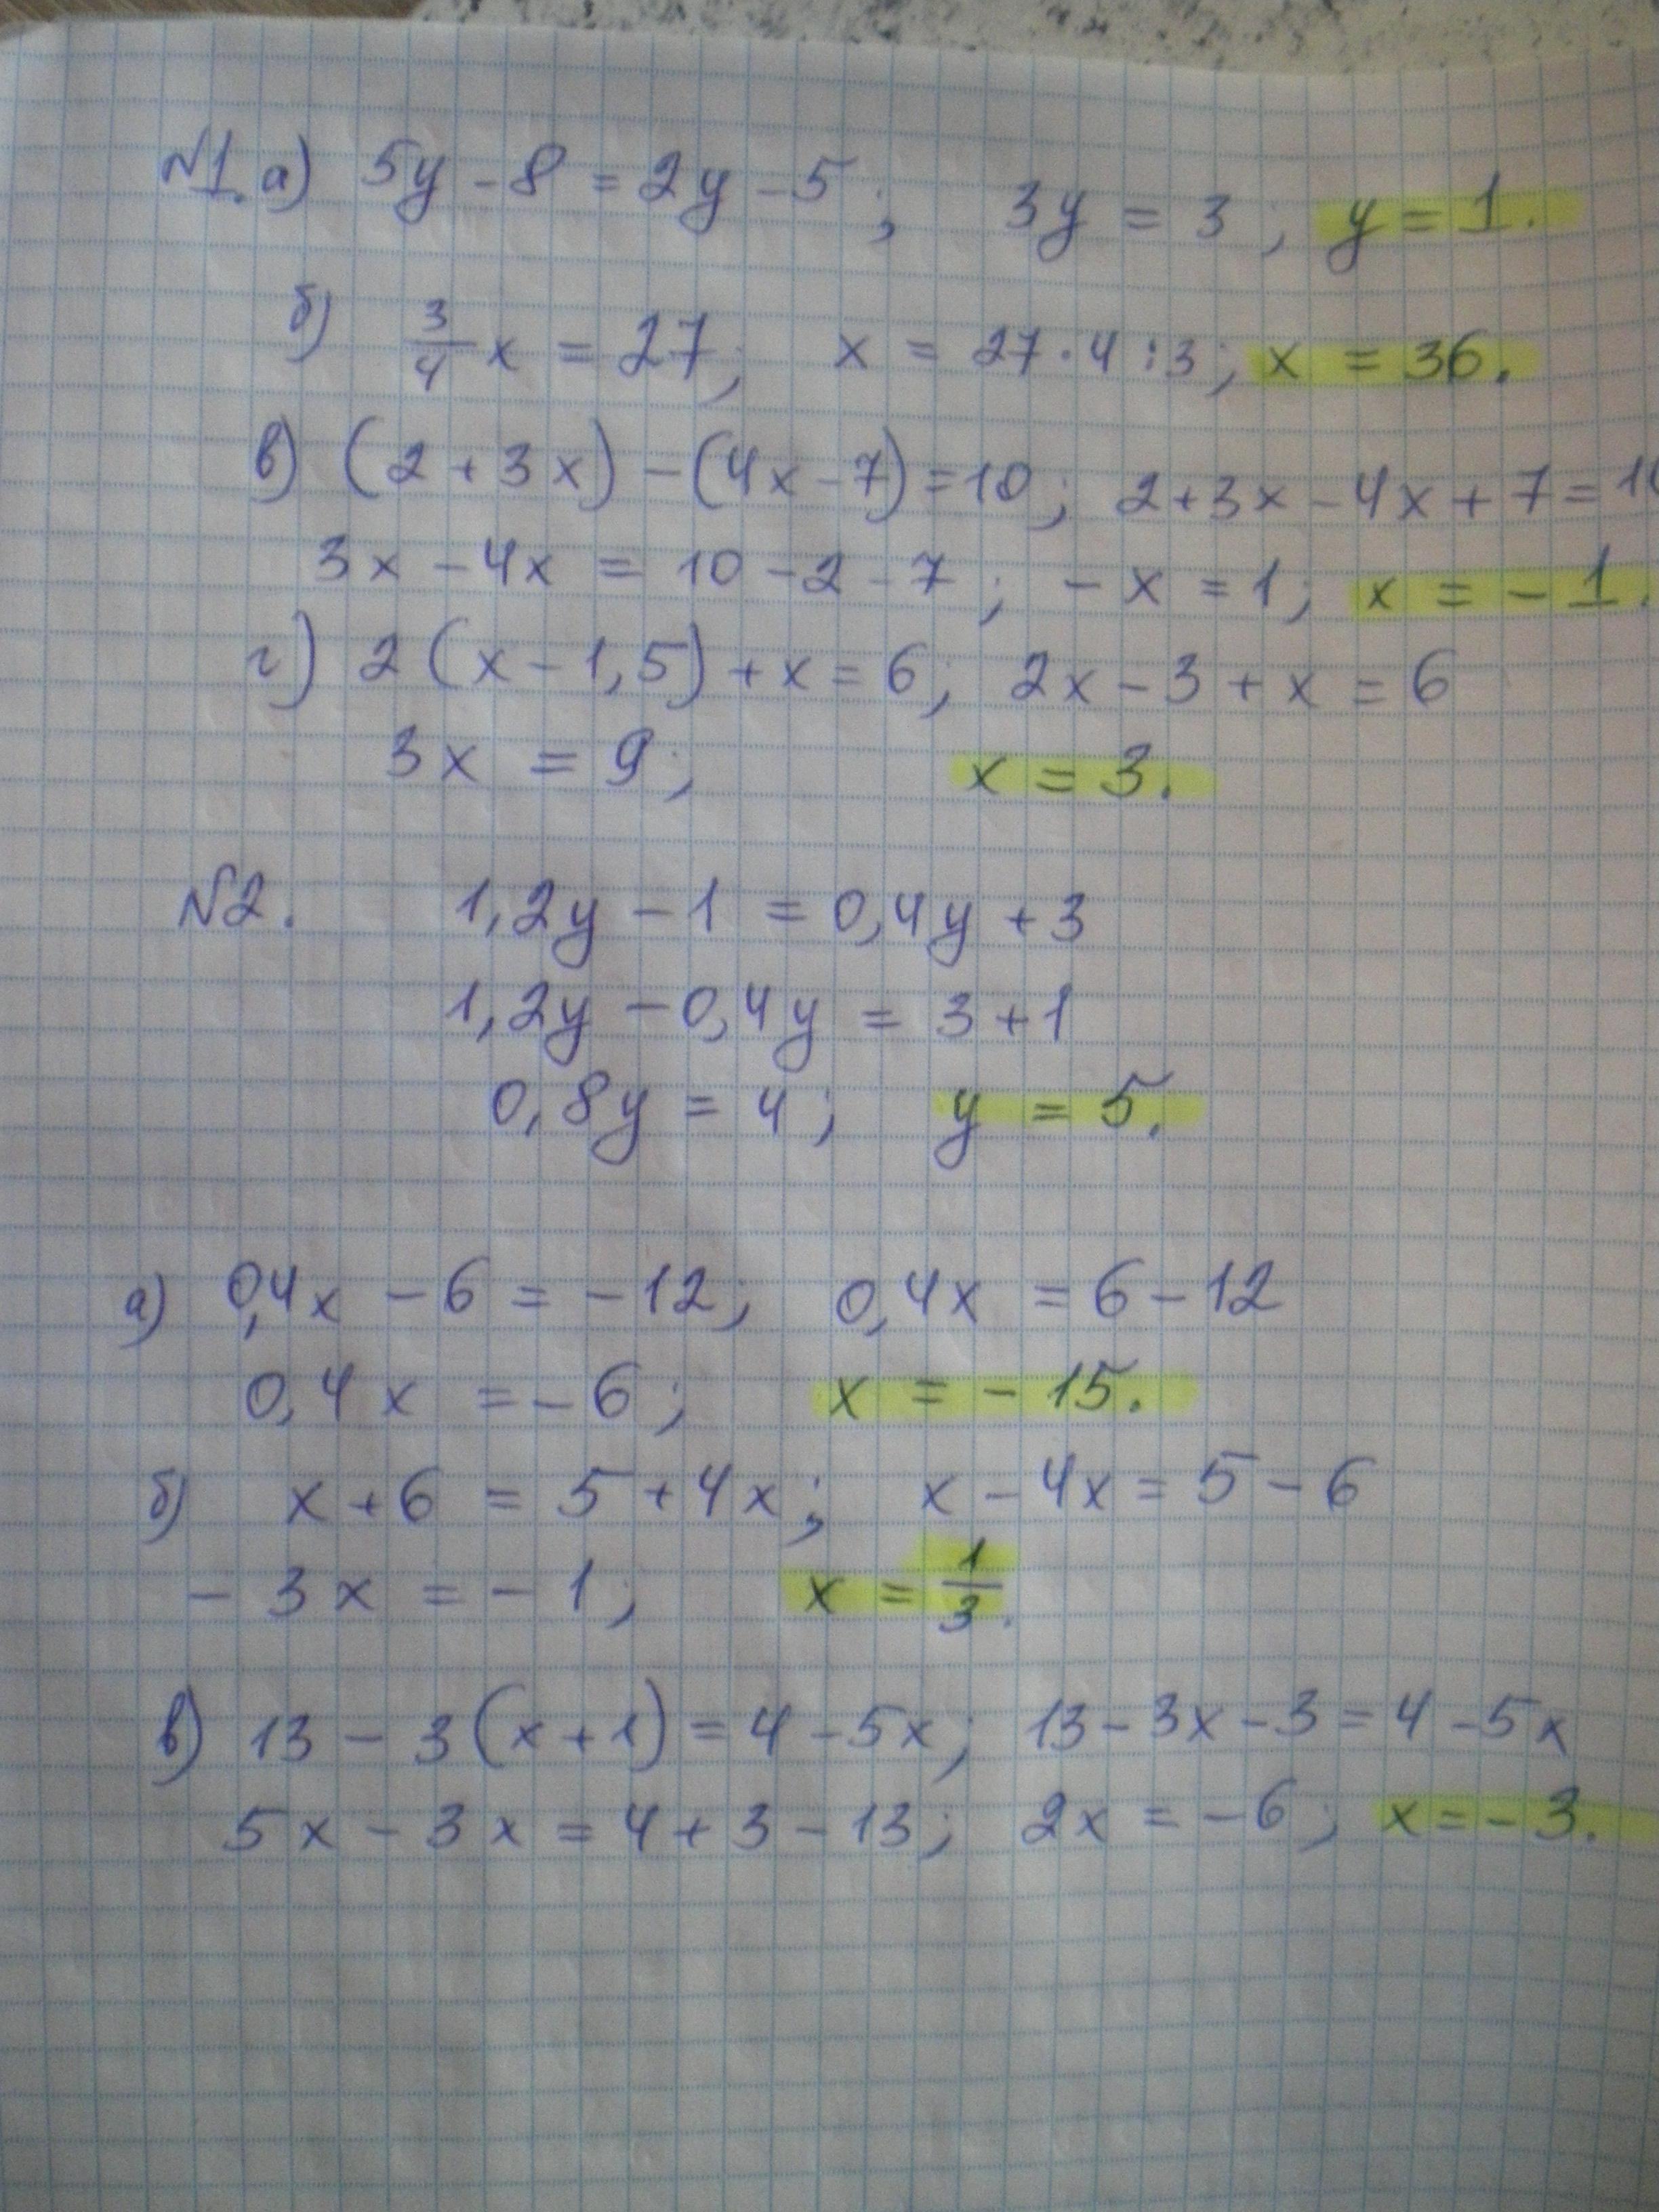 №1. а) 5y - 8 = 2y - 5; 3y = 3; y = 1.
б) 3/4 x = 27; x = 27·4:3; x = 36.
в) (2 + 3x) - (4x - 7) = 10; 2 + 3x - 4x + 7 = 10
3x - 4x = 10 - 2 - 7; - x = 1; x = - 1.
г) 2(x - 1,5) + x = 6; 2x - 3 + x = 6
3x = 9; x = 3.
№2. 1,2y - 1 = 0,4y + 3
1,2y - 0,4y = 3 + 1
0,8y = 4; y = 5.
а) 0,4x - 6 = - 12; 0,4x = 6 - 12
0,4x = - 6; x = - 15.
б) x + 6 = 5 + 4x; x - 4x = 5 - 6
- 3x = - 1; x = 1/3.
в) 13 - 3(x + 1) = 4 - 5x; 13 - 3x - 3 = 4 - 5x
5x - 3x = 4 + 3 - 13; 2x = - 6; x = - 3.